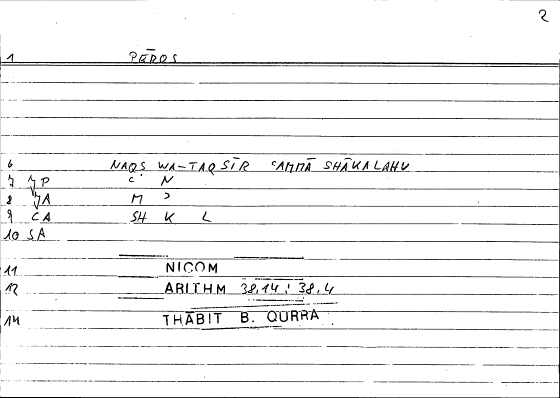 2
1 PĒROS
6 NAQS WA-TAQSĪR ʿAMMĀ SHĀKALAHU
7 JP ʿ N
8 JA M ʾ
9 CA SH K L
10 SA
11 NICOM
12 ARITHM 38,14 : 38,4
14 THĀBIT B. QURRA